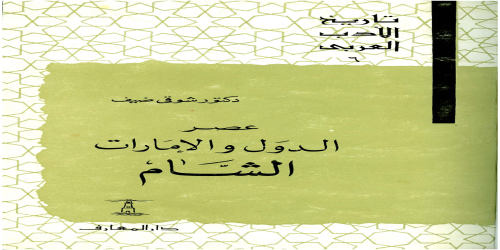 تاريخ
الأدب
العربى
٦
دكتور شوقى ضيف
عصر
الدول والإمارات
الشام
دار المعارف